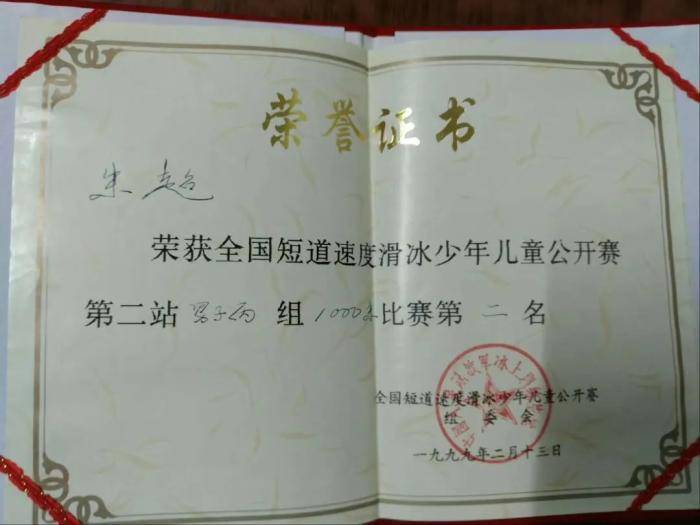 荣誉证书
朱超
荣获全国短道速度滑冰少年儿童公开赛
第二站男子丙组1000米比赛第二名
全国短道速度滑冰少年儿童公开赛
组委会
一九九九年二月十三日